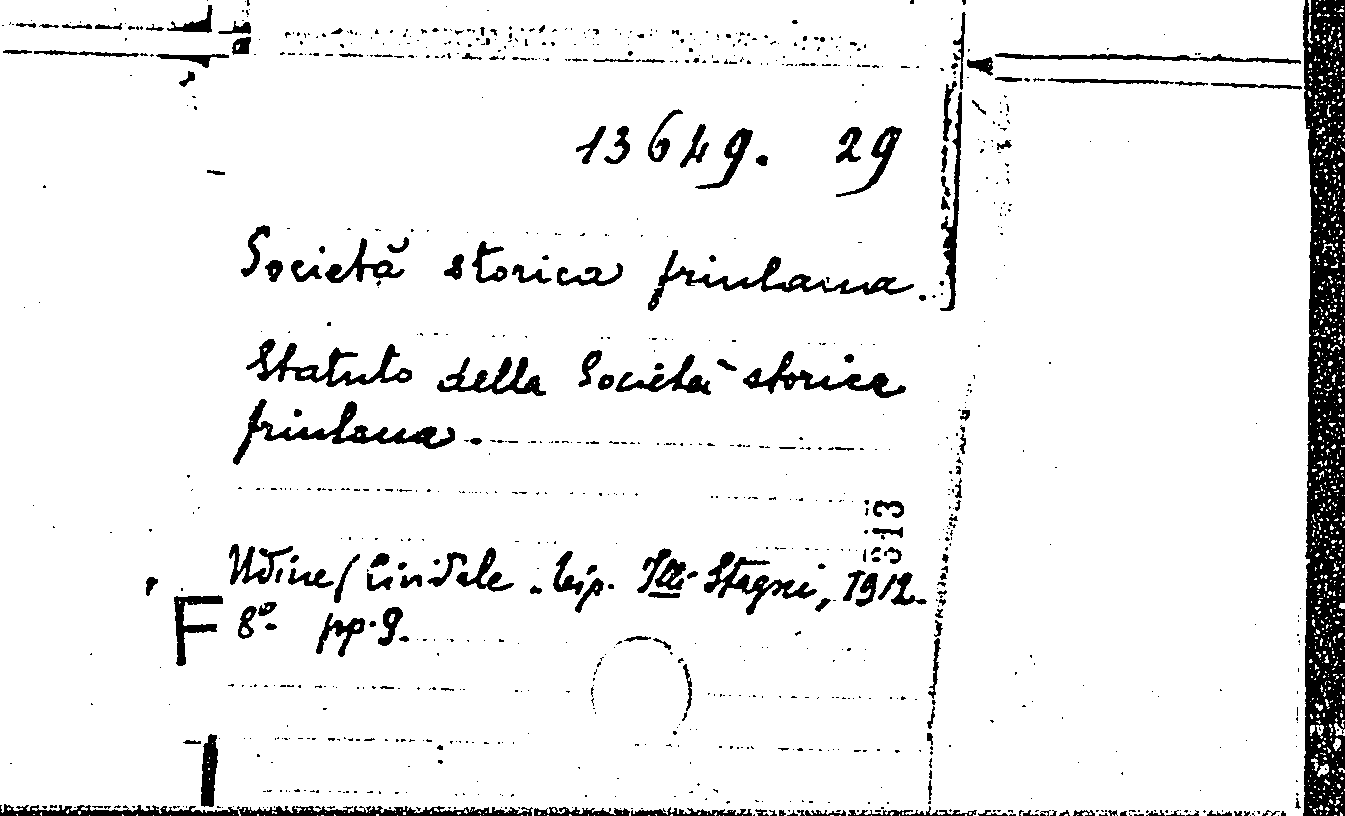 13649. 29
Società storica friulana.
Statuto della Società storica
friulana.
313
Udine/Cividale. tip. Flli Stagni, 1912.
8º pp. 9.
F